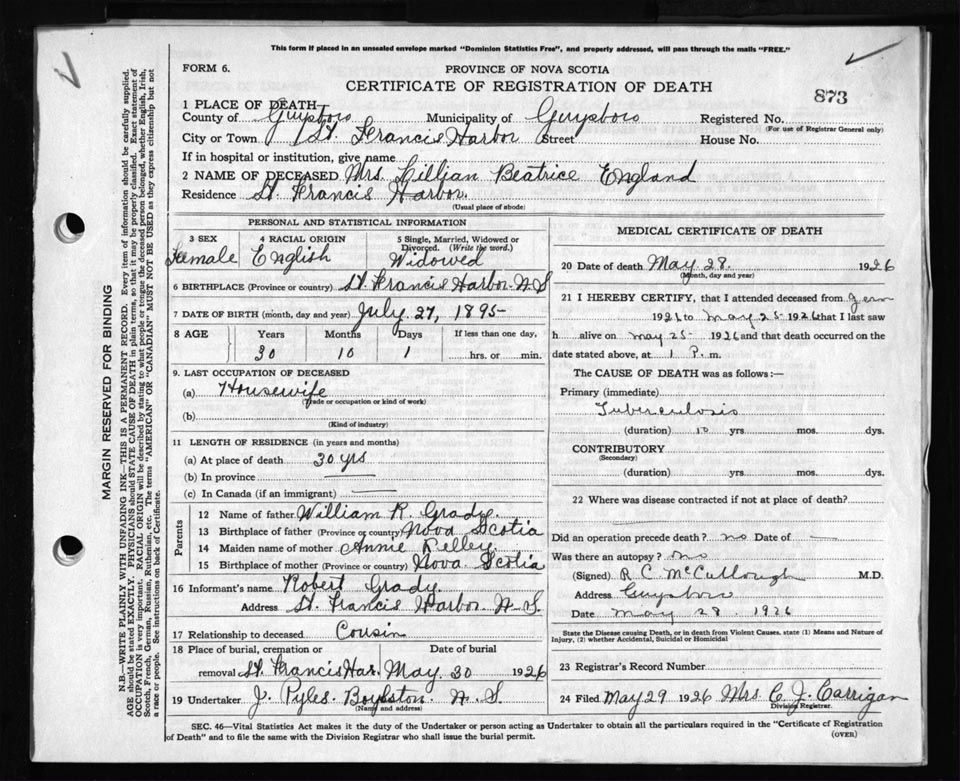 This form if placed in an unsealed envelope marked "Dominion Statistics Free", and properly addressed, will pass through the mails "FREE."
FORM 6.
PROVINCE OF NOVA SCOTIA
CERTIFICATE OF REGISTRATION OF DEATH
873
1 PLACE OF DEATH—
County of Guysboro Municipality of Guysboro Registered No.
(For use of Registrar General only)
City or Town St. Francis Harbor Street House No.
If in hospital or institution, give name
2 NAME OF DECEASED Mrs. Lillian Beatrice England
Residence St. Francis Harbor.
(Usual place of abode)
PERSONAL AND STATISTICAL INFORMATION
3 SEX 4 RACIAL ORIGIN 5 Single, Married, Widowed or Divorced. (Write the word.)
Female English Widowed
6 BIRTHPLACE (Province or country) St. Francis Harbor N.S
7 DATE OF BIRTH (month, day and year) July. 27, 1895-
8 AGE Years Months Days If less than one day,
30 10 1 hrs. or min.
9. LAST OCCUPATION OF DECEASED
(a) Housewife
(Trade or occupation or kind of work)
(b)
(Kind of industry)
11 LENGTH OF RESIDENCE (in years and months)
(a) At place of death 30 yrs
(b) In province —
(c) In Canada (if an immigrant) —
Parents
12 Name of father William R. Grady.
13 Birthplace of father (Province or country) Nova Scotia
14 Maiden name of mother Annie
15 Birthplace of mother (Province or country) Nova Scotia
16 Informant's name Robert Grady
Address St. Francis Harbor N.S.
17 Relationship to deceased Cousin
18 Place of burial, cremation or removal Date of burial
St. Francis Har. May 30 1926
19 Undertaker J. Pyles. Boylston. N.S.
(Name and address)
MEDICAL CERTIFICATE OF DEATH
20 Date of death May 28. 1926
(Month, day and year)
21 I HEREBY CERTIFY, that I attended deceased from
1926 to May 25-1926 that I last saw
h alive on May 25- 1926 and that death occurred on the
date stated above, at 1 P. m.
The CAUSE OF DEATH was as follows:—
Primary (immediate)
Tuberculosis
(duration) 10 yrs. mos. dys.
CONTRIBUTORY
(Secondary)
(duration) yrs. mos. dys.
22 Where was disease contracted if not at place of death?
Did an operation precede death? no Date of —
Was there an autopsy? no
(Signed) R C McCullough M.D.
Address Guysboro
Date May 28. 1926
State the Disease causing Death, or in death from Violent Causes, state (1) Means and Nature of
Injury, (2) whether Accidental, Suicidal or Homicidal
23 Registrar's Record Number
24 Filed May 29 1926 Mrs. C. J. Carrigan
Division Registrar.
SEC. 46—Vital Statistics Act makes it the duty of the Undertaker or person acting as Undertaker to obtain all the particulars required in the "Certificate of Registration
of Death" and to file the same with the Division Registrar who shall issue the burial permit.
(OVER)
MARGIN RESERVED FOR BINDING
N.B.—WRITE PLAINLY WITH UNFADING INK—THIS IS A PERMANENT RECORD. Every item of information should be carefully supplied.
AGE should be stated EXACTLY. PHYSICIANS should STATE CAUSE OF DEATH in plain terms, so that it may be properly classified. Exact statement of
OCCUPATION is very important. RACIAL ORIGIN will be described by stating to what people or tongue the deceased person belonged, whether English, Irish,
Scotch, French, German, Russian, Ruthenian, etc. The terms "AMERICAN" OR "CANADIAN" MUST NOT BE USED as they express citizenship but not
a race or people. See instructions on back of Certificate.